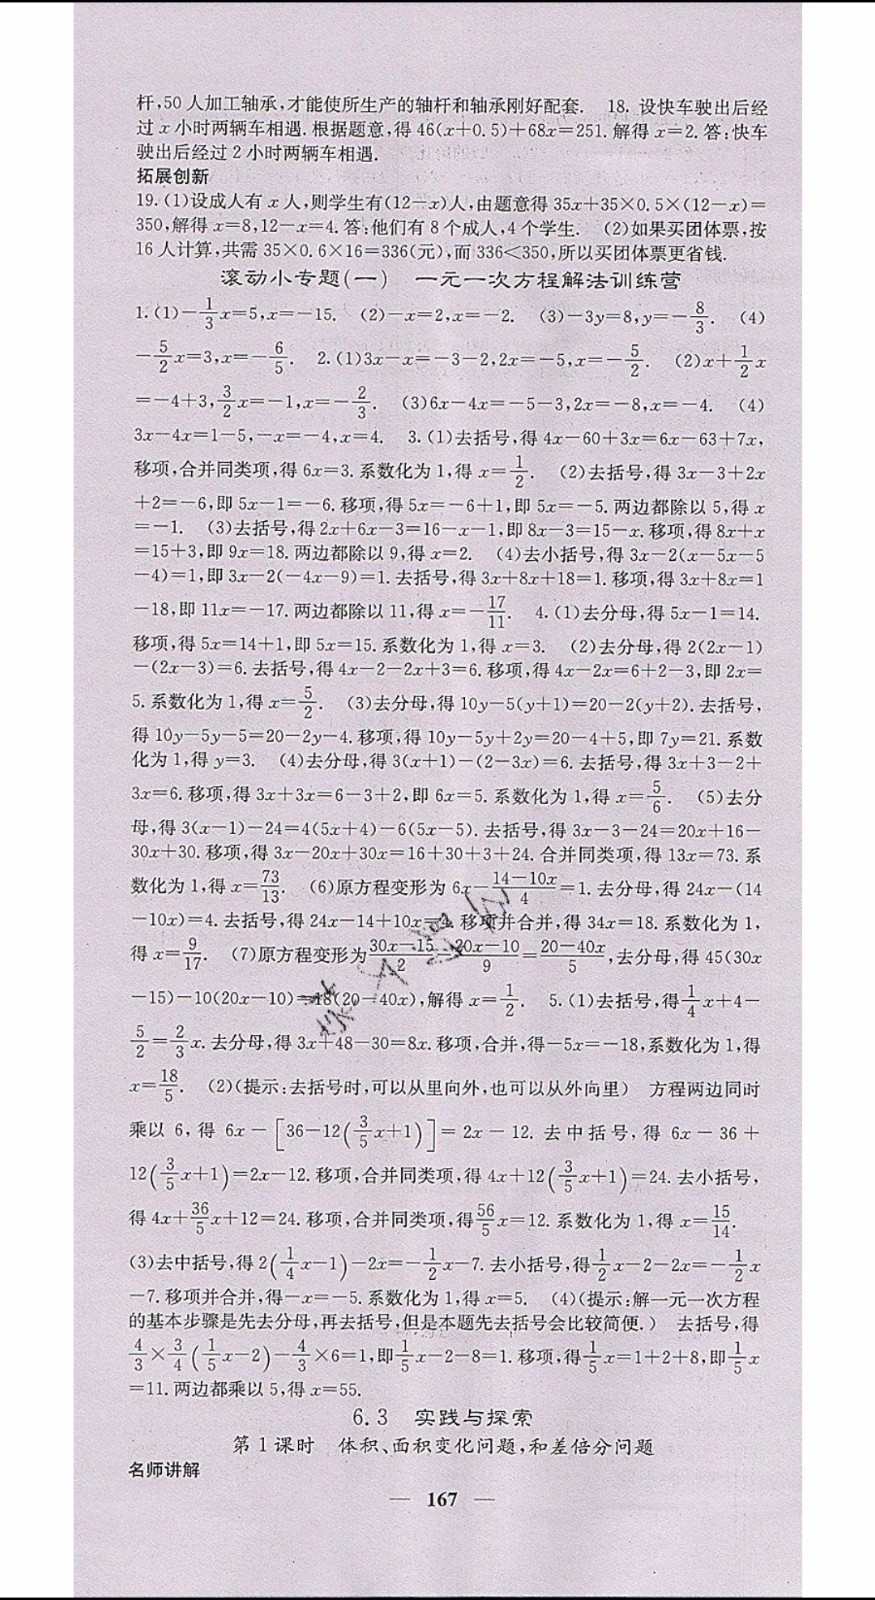 杆,50人加工轴承,才能使所生产的轴杆和轴承刚好配套. 18. 设快车驶出后经
过x小时两辆车相遇.根据题意,得46(x+0.5)+68x=251.解得x=2.答:快车
驶出后经过2小时两辆车相遇.
拓展创新
19.(1)设成人有x人,则学生有(12-x)人,由题意得35x+35×0.5×(12-x)=
350,解得x=8,12-x=4.答:他们有8个成人,4个学生. (2)如果买团体票,按
16人计算,共需35×0.6×16=336(元),而336<350,所以买团体票更省钱.
滚动小专题(一) 一元一次方程解法训练营
1.(1)-1/3x=5,x=-15. (2)-x=2,x=-2. (3)-3y=8,y=-8/3. (4)
-5/2x=3,x=-6/5. 2.(1)3x-x=-3-2,2x=-5,x=-5/2. (2)x+1/2x
=-4+3,3/2x=-1,x=-2/3. (3)6x-4x=-5-3,2x=-8,x=-4. (4)
3x-4x=1-5,-x=-4,x=4. 3.(1)去括号,得4x-60+3x=6x-63+7x,
移项,合并同类项,得6x=3.系数化为1,得x=1/2. (2)去括号,得3x-3+2x
+2=-6,即5x-1=-6.移项,得5x=-6+1,即5x=-5.两边都除以5,得x
=-1. (3)去括号,得2x+6x-3=16-x-1,即8x-3=15-x.移项,得8x+x
=15+3,即9x=18.两边都除以9,得x=2. (4)去小括号,得3x-2(x-5x-5
-4)=1,即3x-2(-4x-9)=1.去括号,得3x+8x+18=1.移项,得3x+8x=1
-18,即11x=-17.两边都除以11,得x=-17/11. 4.(1)去分母,得5x-1=14.
移项,得5x=14+1,即5x=15.系数化为1,得x=3. (2)去分母,得2(2x-1)
-(2x-3)=6.去括号,得4x-2-2x+3=6.移项,得4x-2x=6+2-3,即2x=
5.系数化为1,得x=5/2. (3)去分母,得10y-5(y+1)=20-2(y+2).去括号,
得10y-5y-5=20-2y-4.移项,得10y-5y+2y=20-4+5,即7y=21.系数
化为1,得y=3. (4)去分母,得3(x+1)-(2-3x)=6.去括号,得3x+3-2+
3x=6.移项,得3x+3x=6-3+2,即6x=5.系数化为1,得x=5/6. (5)去分
母,得3(x-1)-24=4(5x+4)-6(5x-5).去括号,得3x-3-24=20x+16-
30x+30.移项,得3x-20x+30x=16+30+3+24.合并同类项,得13x=73.系
数化为1,得x=73/13. (6)原方程变形为6x-(14-10x)/4=1.去分母,得24x-(14
-10x)=4.去括号,得24x-14+10x=4.移项并合并,得34x=18.系数化为1,
得x=9/17. (7)原方程变形为(30x-15)/2-(20x-10)/9=(20-40x)/5,去分母,得45(30x
-15)-10(20x-10)=18(20-40x),解得x=1/2. 5.(1)去括号,得1/4x+4-
5/2=2/3x.去分母,得3x+48-30=8x.移项,合并,得-5x=-18,系数化为1,得
x=18/5. (2)(提示:去括号时,可以从里向外,也可以从外向里) 方程两边同时
乘以6,得6x-[36-12(3/5x+1)]=2x-12.去中括号,得6x-36+
12(3/5x+1)=2x-12.移项,合并同类项,得4x+12(3/5x+1)=24.去小括号,
得4x+36/5x+12=24.移项,合并同类项,得56/5x=12.系数化为1,得x=15/14.
(3)去中括号,得2(1/4x-1)-2x=-1/2x-7.去小括号,得1/2x-2-2x=-1/2x
-7.移项并合并,得-x=-5.系数化为1,得x=5. (4)(提示:解一元一次方程
的基本步骤是先去分母,再去括号,但是本题先去括号会比较简便.) 去括号,得
4/3×3/4(1/5x-2)-4/3×6=1,即1/5x-2-8=1.移项,得1/5x=1+2+8,即1/5x
=11.两边都乘以5,得x=55.
6.3 实践与探索
第1课时 体积、面积变化问题,和差倍分问题
名师讲解
— 167 —